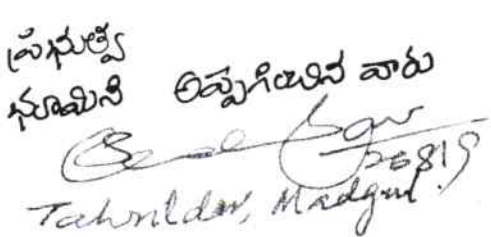 ప్రభుత్వ
భూమిని అప్పగించిన వారు
26819
Tahsildar, Madgul.